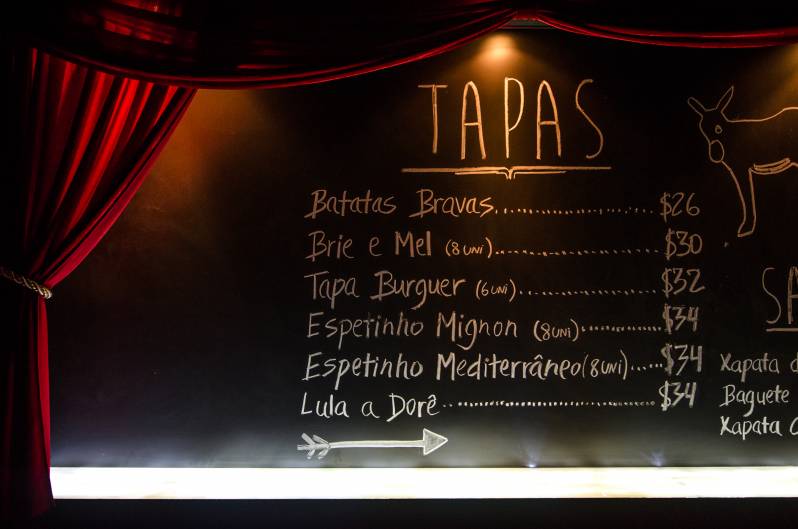 TAPAS
Batatas Bravas.................. $26
Brie e Mel (8 UNI).................. $30
Tapa Burguer (6 UNI).................. $32
Espetinho Mignon (8 UNI).................. $34
Espetinho Mediterrâneo (8 UNI)..... $34
Lula a Dorê.................. $34
Xapata
Baguete
Xapata